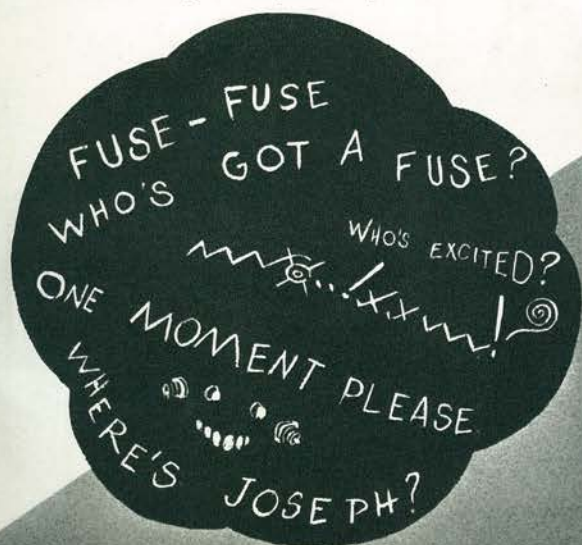 FUSE - FUSE
WHO'S GOT A FUSE?
WHO'S EXCITED?
ONE MOMENT PLEASE
WHERE'S JOSEPH?